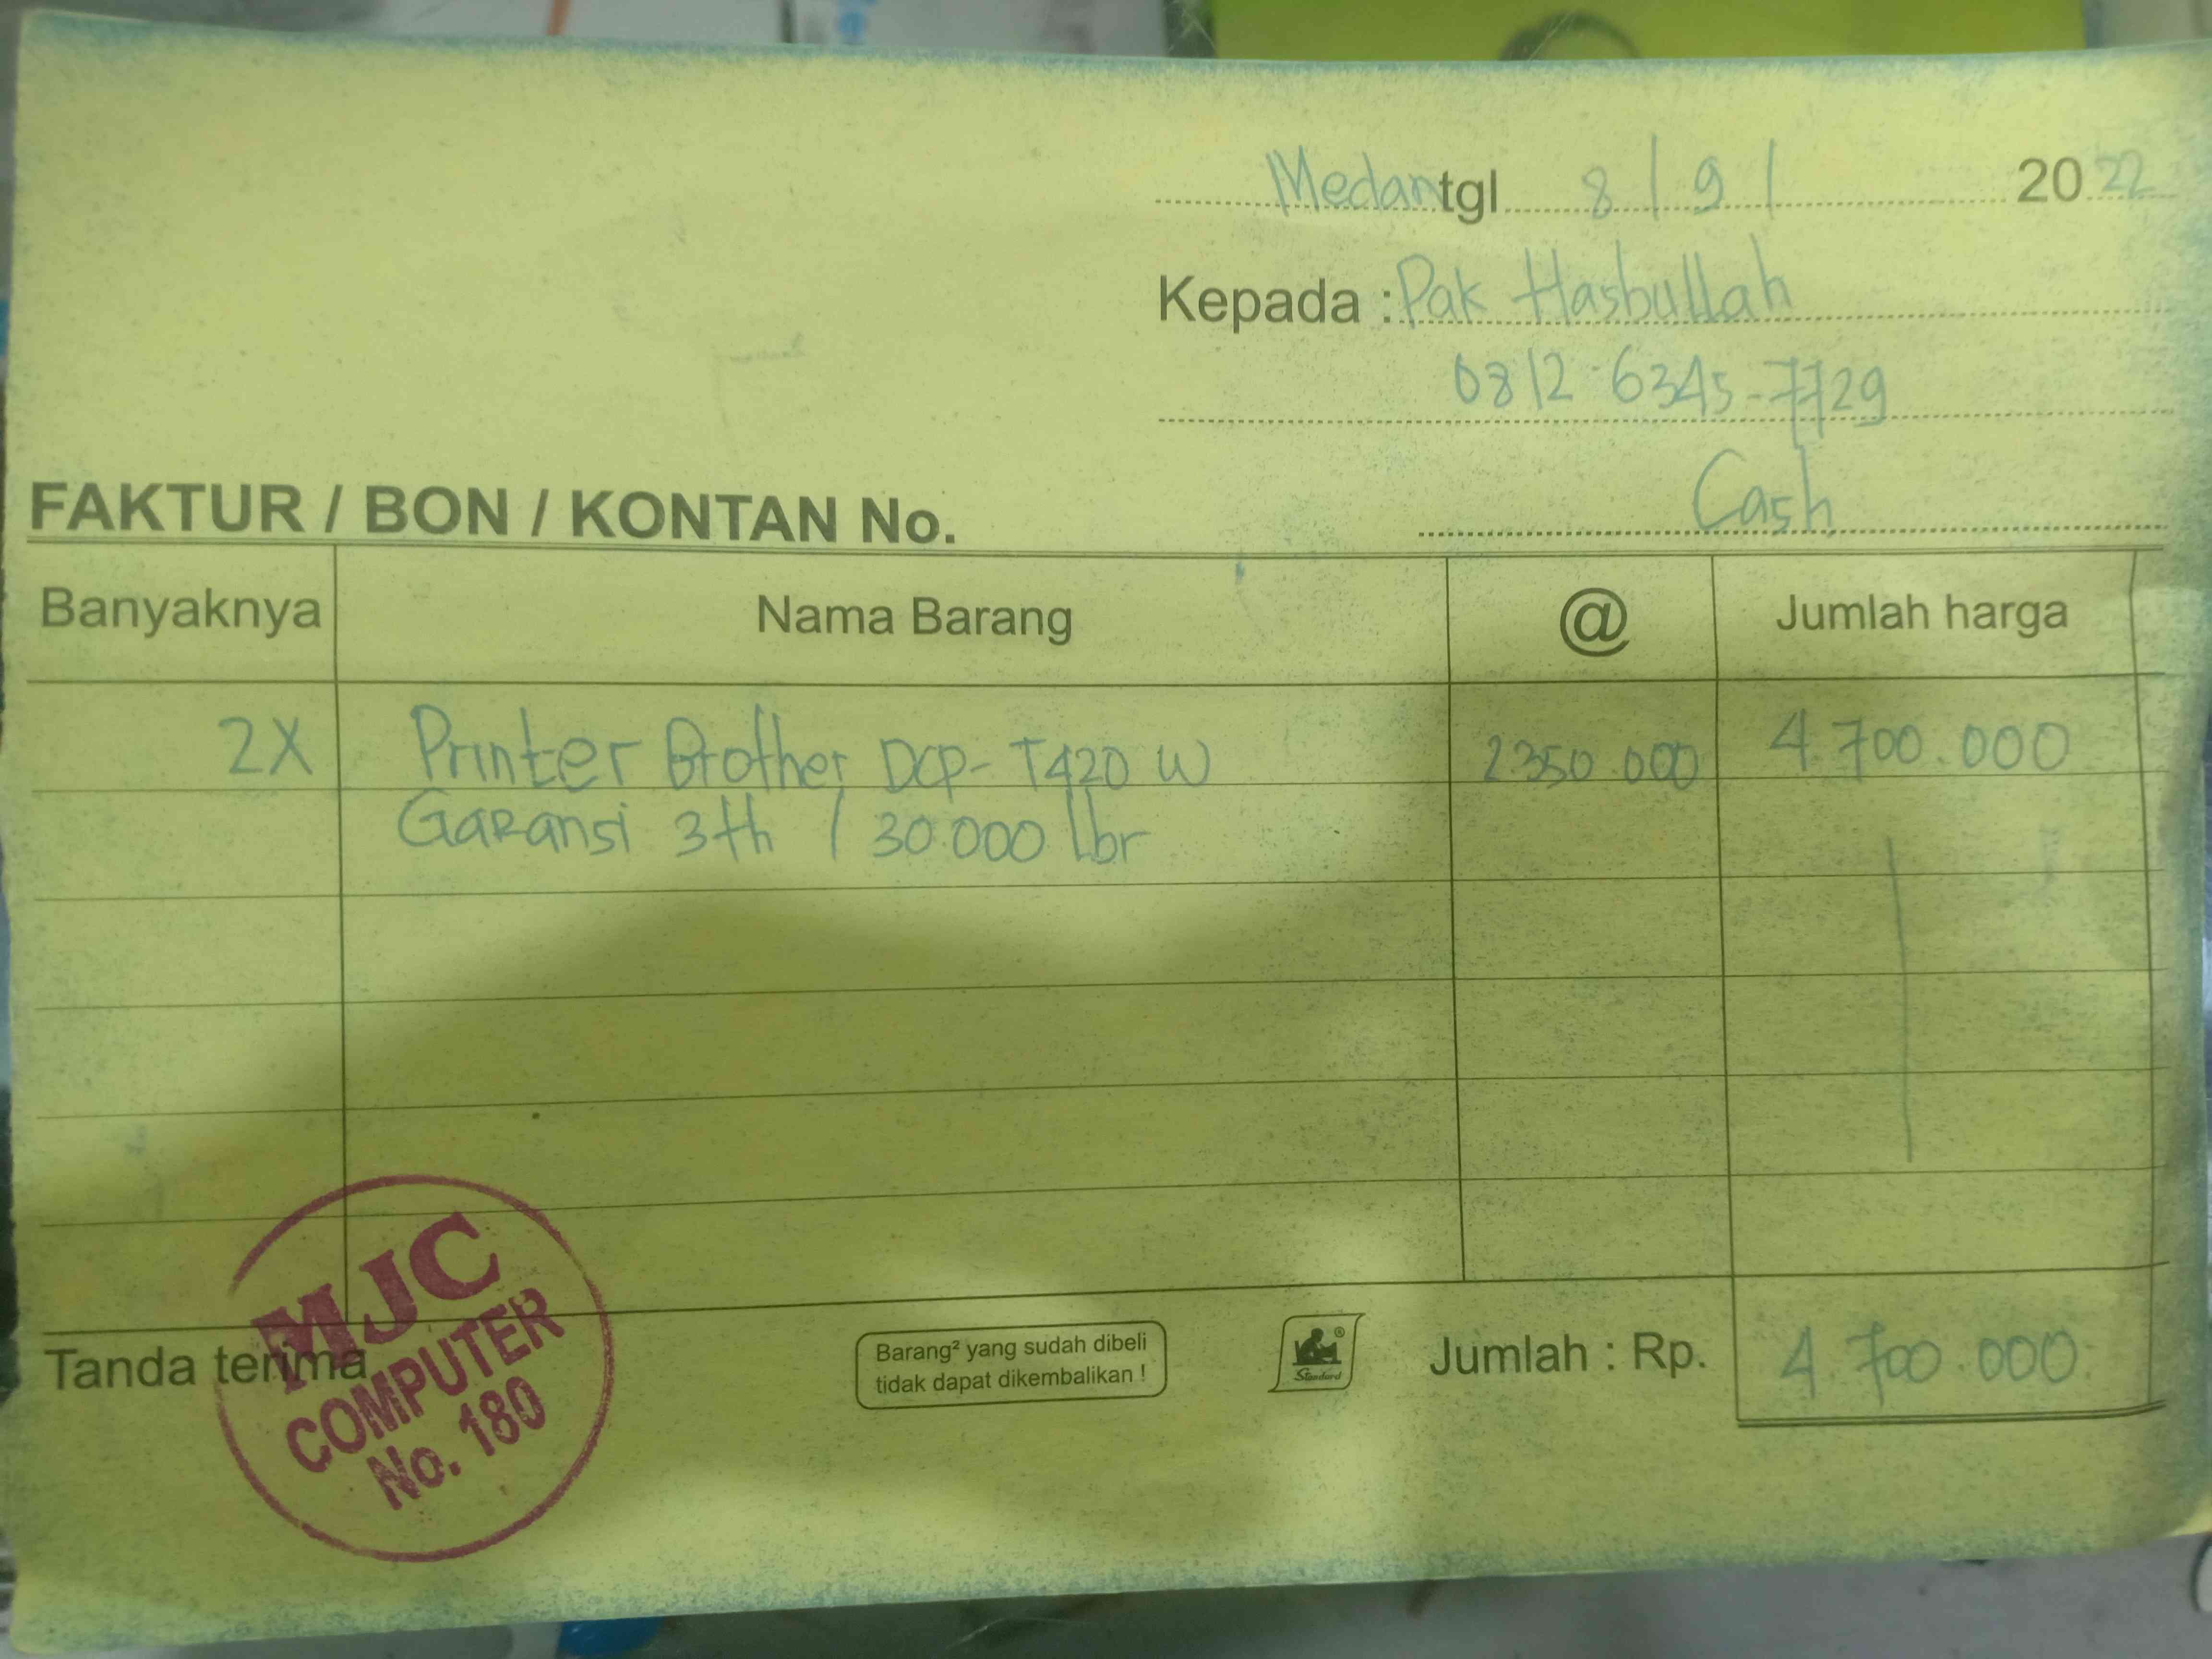 Medan tgl 8 / 9 / 2022
Kepada : Pak Hasbullah
0812-6345-7729
Cash
FAKTUR / BON / KONTAN No.
Banyaknya Nama Barang @ Jumlah harga
2X Printer Brother DCP-T420 W 2.350.000 4.700.000
Garansi 3th / 30.000 lbr
MJC
COMPUTER
No. 180
Tanda terima
Barang² yang sudah dibeli
tidak dapat dikembalikan !
® Standard
Jumlah : Rp. 4.700.000